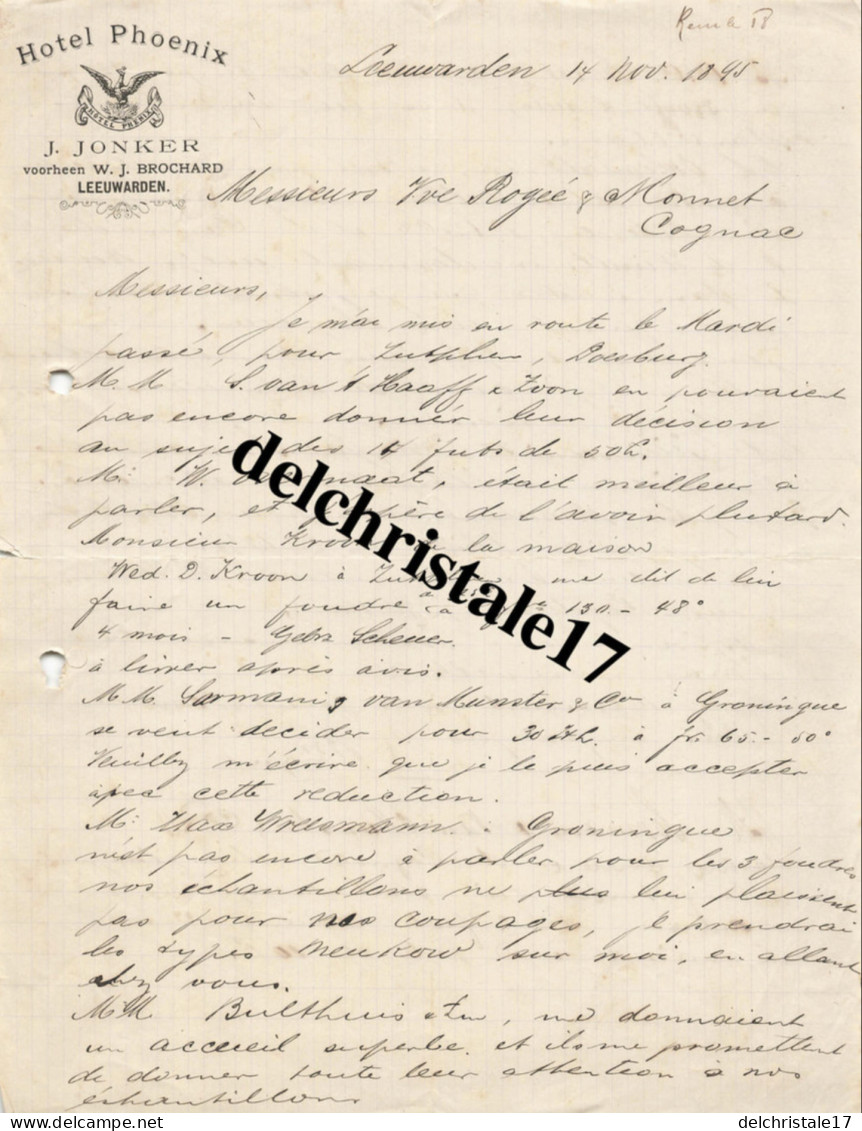 Hotel Phoenix
HOTEL PHENIX
J. JONKER
voorheen W. J. BROCHARD
LEEUWARDEN.
Leeuwarden 14 Nov. 1895
Messieurs Vve Rogée & Monnet
Cognac
Messieurs,
Je m'ai mis en route le Mardi
passé, pour Zutphen, Doesburg.
M.M S. van 't Haaff & Zoon en pouvaient
pas encore donner leur décision
au sujet des 14 futs de 50 L.
Mr W. était meilleur à
parler, et de l'avoir plutard.
Monsieur Kroon la maison
Wed. D. Kroon à me dit de lui
faire un foudre à 130.- 48°
4 mois - Gebr. Scheuer.
à livrer après avis.
M.M. Sormani, van Munster & Co à Groningue
se veut decider pour 30 Hh. à fr. 65.- 50°
Veuillez m'écrire que je le puis accepter
avec cette reduction.
Mr Max Vreesmann. Groningue
n'est pas encore à parler pour les 3 foudres
nos échantillons ne lui plaisent
pas pour nos coupages, je prendrai
les types Meukow sur moi, en allant
chez vous.
M.M Bulthuis & Zn, me donnaient
un accueil superbe. et ils me promettent
de donner toute leur attention à nos
échantillons
delchristale17
delcampe.net
delchristale17